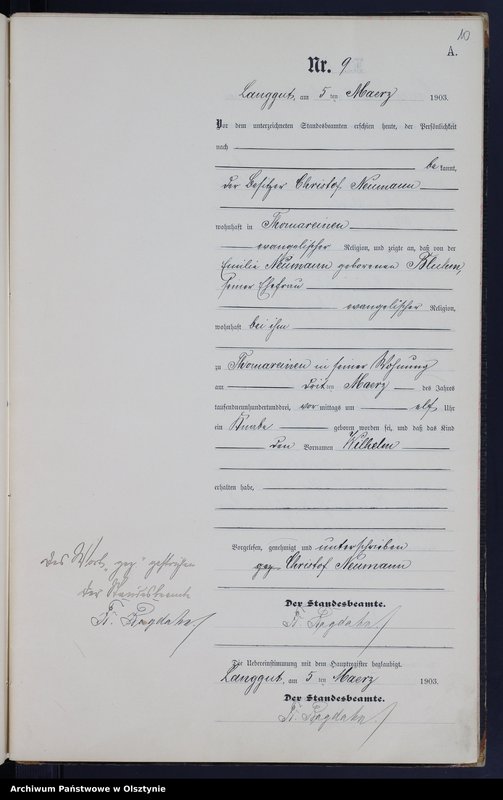 10
A.
Nr. 9
Langgut, am 5 ten Maerz 1903.
Vor dem unterzeichneten Standesbeamten erschien heute, der Persönlichkeit
nach
be kannt,
der Besitzer Christof Neumann
wohnhaft in Thomareinen
evangelischer Religion, und zeigte an, daß von der
Emilie Neumann geborenen Bluhm,
seiner Ehefrau
evangelischer Religion,
wohnhaft bei ihm
zu Thomareinen in seiner Wohnung
am dritten Maerz des Jahres
tausendneunhundertunddrei, vor mittags um elf Uhr
ein Knabe geboren worden sei, und daß das Kind
den Vornamen Wilhelm
erhalten habe.
Vorgelesen, genehmigt und unterschrieben
gez. Christof Neumann
Das Wort „gez." gestrichen
Der Standesbeamte
Der Standesbeamte.
Die Uebereinstimmung mit dem Hauptregister beglaubigt.
Langgut, am 5 ten Maerz 1903.
Der Standesbeamte.
Archiwum Państwowe w Olsztynie